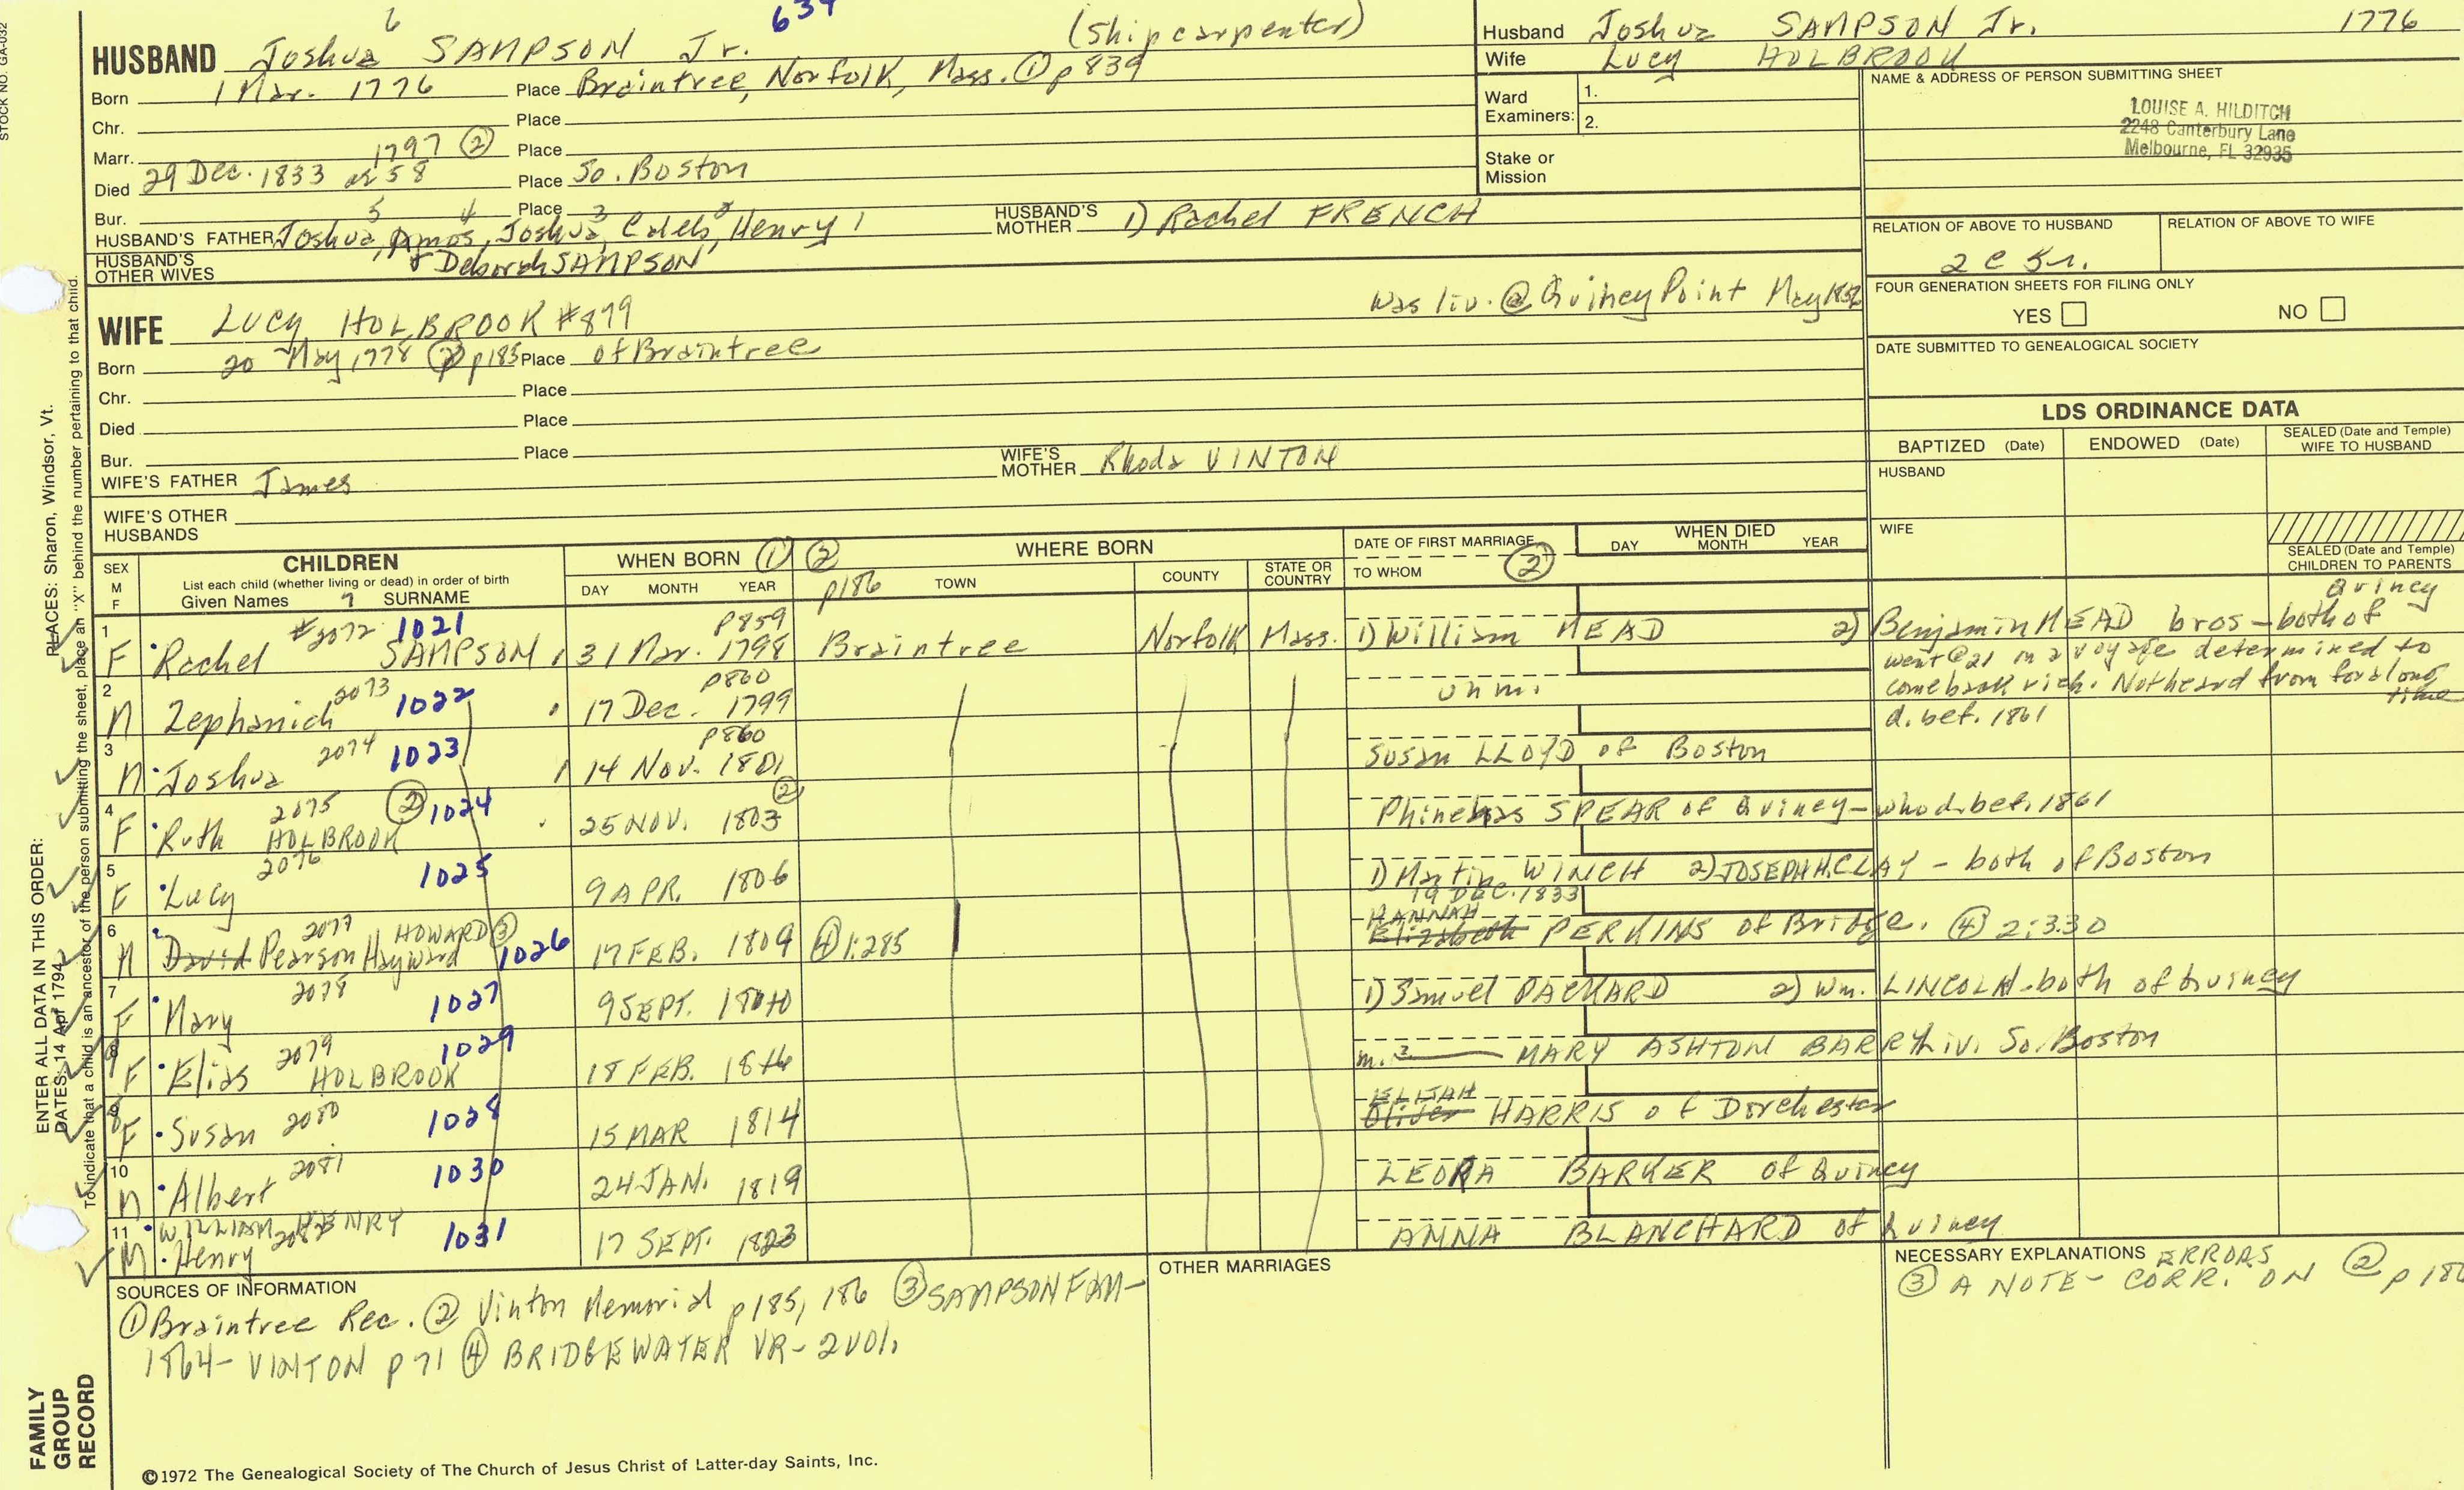 STOCK NO. GA-032
6 634
HUSBAND Joshua SAMPSON Jr. (shipcarpenter)
Born 1 Mar. 1776 Place Braintree, Norfolk, Mass. ① p 839
Chr. Place
Marr. 1797 ② Place
Died 29 Dec. 1833 ae 58 Place So. Boston
Bur. Place
5 4 3 2
HUSBAND'S FATHER Joshua, Amos, Joshua, Caleb, Henry 1 HUSBAND'S MOTHER 1) Rachel FRENCH
HUSBAND'S OTHER WIVES & Deborah SAMPSON
was liv. @ Quincy Point May
WIFE LUCY HOLBROOK #879
Born 20 May 1778 ② p185 Place of Braintree
Chr. Place
Died Place
Bur. Place
WIFE'S FATHER James WIFE'S MOTHER Rhoda VINTON
WIFE'S OTHER HUSBANDS
Husband Joshua SAMPSON Jr. 1776
Wife Lucy HOLBROOK
Ward Examiners: 1.
2.
Stake or Mission
NAME & ADDRESS OF PERSON SUBMITTING SHEET
LOUISE A. HILDITCH
2248 Canterbury Lane
Melbourne, FL 32935
RELATION OF ABOVE TO HUSBAND RELATION OF ABOVE TO WIFE
2 c 5r.
FOUR GENERATION SHEETS FOR FILING ONLY
YES NO
DATE SUBMITTED TO GENEALOGICAL SOCIETY
LDS ORDINANCE DATA
BAPTIZED (Date) ENDOWED (Date) SEALED (Date and Temple) WIFE TO HUSBAND
HUSBAND
WIFE
SEALED (Date and Temple) CHILDREN TO PARENTS
SEX M F
CHILDREN
List each child (whether living or dead) in order of birth
Given Names 7 SURNAME
WHEN BORN ① ②
DAY MONTH YEAR
WHERE BORN
p186 TOWN COUNTY STATE OR COUNTRY
DATE OF FIRST MARRIAGE
TO WHOM ②
WHEN DIED
DAY MONTH YEAR
1 F Rachel #2072 1021 SAMPSON 31 Mar. 1798 p859 Braintree Norfolk Mass. 1) William MEAD 2) Benjamin MEAD bros - both of Quincy
2 M Zephaniah 2073 1022 17 Dec. 1799 p860 unm. went @21 in a voyage determined to come back rich. Not heard from for a long time
d. bef. 1861
3 M Joshua 2074 1023 14 Nov. 1801 p860 Susan LLOYD of Boston
4 F Ruth HOLBROOK 2075 ② 1024 25 NOV. 1803 ② Phinehas SPEAR of Quincy - who d. bef. 1861
5 F Lucy 2076 1025 9 APR. 1806 1) Martin WINCH 2) JOSEPH H. CLAY - both of Boston
6 M David Pearson Hayward 2077 HOWARD ③ 1026 17 FEB. 1809 ④ 1:285 19 DEC. 1833 HANNAH Elizabeth PERKINS of Bridge. ④ 2:330
7 F Mary 2078 1027 9 SEPT. 1) Samuel PACKARD 2) Wm. LINCOLN - both of Quincy
F Elias HOLBROOK 2079 1029 18 FEB. m. MARY ASHTON BARRY liv. So. Boston
F Susan 2080 1028 15 MAR 1814 ELIJAH HARRIS of Dorchester
10 M Albert 2081 1030 24 JAN. 1819 LEORA BARKER of Quincy
11 M WILLIAM HENRY Henry 1031 17 SEPT. 1823 ANNA BLANCHARD of Quincy
SOURCES OF INFORMATION
① Braintree Rec. ② Vinton Memorial p185, 186 ③ SAMPSON FAM-
1864 - VINTON p 71 ④ BRIDGEWATER VR - 2 VOL.
OTHER MARRIAGES
NECESSARY EXPLANATIONS ERRORS
③ A NOTE - CORR. ON ② p 186
©1972 The Genealogical Society of The Church of Jesus Christ of Latter-day Saints, Inc.
FAMILY GROUP RECORD
ENTER ALL DATA IN THIS ORDER:
DATES: 14 Apr 1794
PLACES: Sharon, Windsor, Vt.
To indicate that a child is an ancestor of the person submitting the sheet, place an "X" behind the number pertaining to that child.